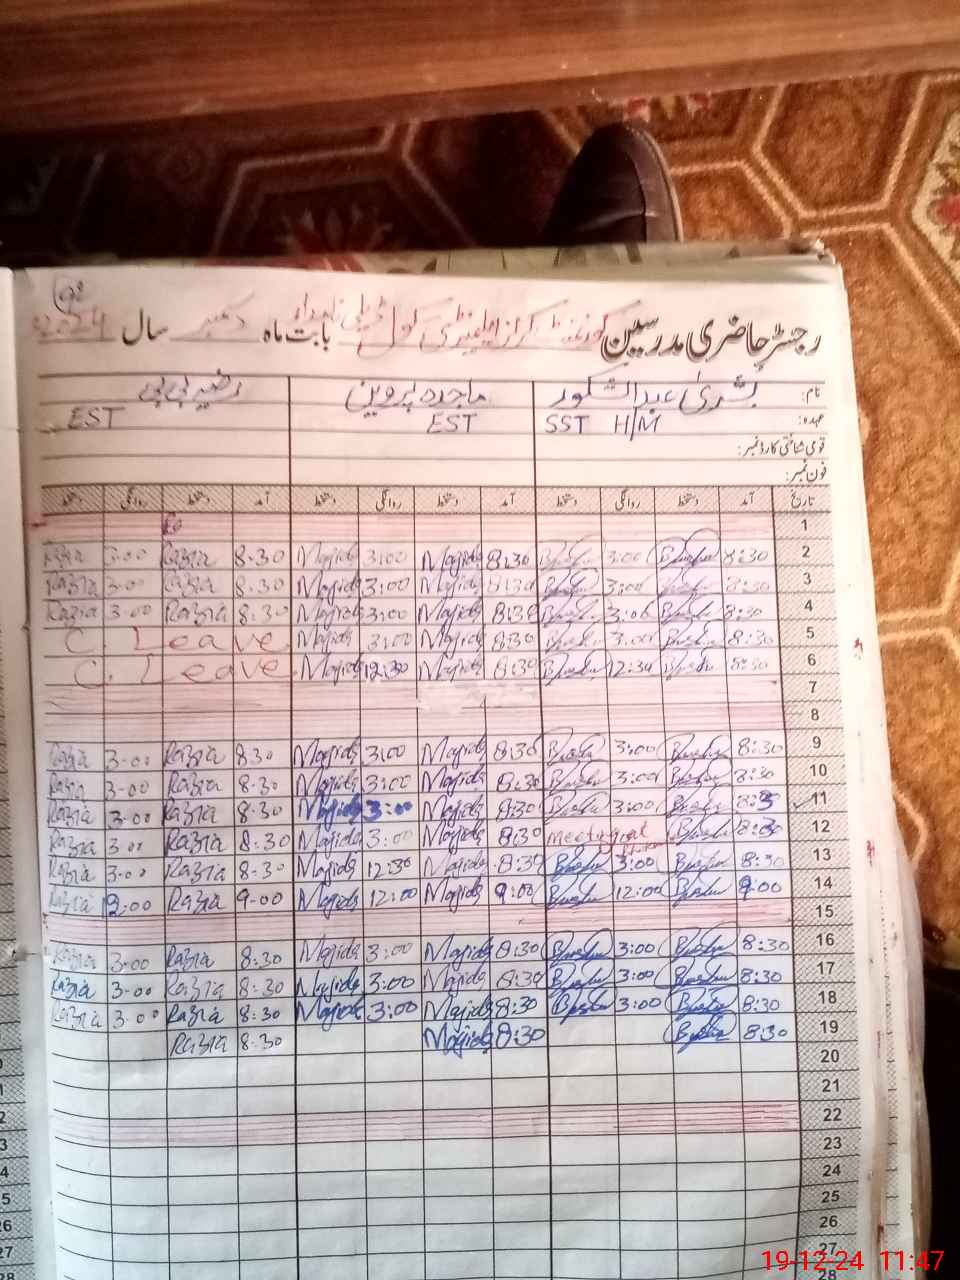 رجسٹر حاضری مدرسین گورنمنٹ گرلز ایلیمنٹری سکول بابت ماہ دسمبر سال 2024
نام: بشریٰ عبدالشکور ماجدہ پروین رضیہ بی بی
عہدہ: SST H/M EST EST
قومی شناختی کارڈ نمبر:
فون نمبر:
تاریخ آمد دستخط روانگی دستخط آمد دستخط روانگی دستخط آمد دستخط روانگی دستخط
1
Razia 3-00 Razia 8-30 Majida 3:00 Majida 8:30 Bushra 3:00 Bushra 8:30 2
Razia 3-00 Razia 8-30 Majida 3:00 Majida 8:30 Bushra 3:00 Bushra 8:30 3
Razia 3-00 Razia 8-30 Majida 3:00 Majida 8:30 Bushra 3:00 Bushra 8:30 4
C. Leave Majida 3:00 Majida 8:30 Bushra 3:00 Bushra 8:30 5
C. Leave Majida 12:30 Majida 8:30 Bushra 12:30 Bushra 8:30 6
7
8
Razia 3-00 Razia 8-30 Majida 3:00 Majida 8:30 Bushra 3:00 Bushra 8:30 9
Razia 3-00 Razia 8-30 Majida 3:00 Majida 8:30 Bushra 3:00 Bushra 8:30 10
Razia 3-00 Razia 8-30 Majida 3:00 Majida 8:30 Bushra 3:00 Bushra 8:30 11
Razia 3-00 Razia 8-30 Majida 3:00 Majida 8:30 Bushra 8:30 12
Razia 3-00 Razia 8-30 Majida 12:30 Majida 8:30 Bushra 3:00 Bushra 8:30 13
Razia 12:00 Razia 9-00 Majida 12:00 Majida 9:00 Bushra 12:00 Bushra 9:00 14
15
Razia 3-00 Razia 8-30 Majida 3:00 Majida 8:30 Bushra 3:00 Bushra 8:30 16
Razia 3-00 Razia 8-30 Majida 3:00 Majida 8:30 Bushra 3:00 Bushra 8:30 17
Razia 3-00 Razia 8-30 Majida 3:00 Majida 8:30 Bushra 3:00 Bushra 8:30 18
Razia 8-30 Majida 8:30 Bushra 8:30 19
20
21
22
23
24
25
26
27
28
19-12-24 11:47